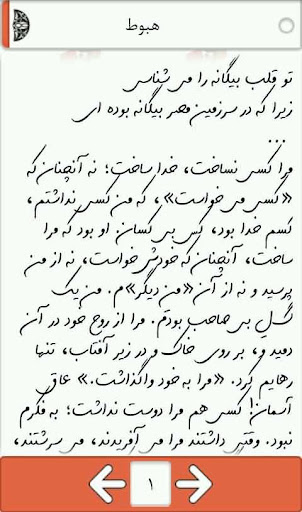 هبوط
تو قلب بیگانه را می شناسی
زیرا که در سرزمین مصر بیگانه بوده ای
...
مرا کسی نساخت، خدا ساخت؛ نه آنچنان که
«کسی می خواست»، که من کسی نداشتم،
کسم خدا بود، کس بی کسان. او بود که مرا
ساخت، آنچنان که خودش خواست، نه از من
پرسید و نه از آن «من دیگر»م. من یک
گل بی صاحب بودم. مرا از روح خود در آن
دمید و، بر روی خاک و در زیر آفتاب، تنها
رهایم کرد. «مرا به خود واگذاشت.» عاق
آسمان! کسی هم مرا دوست نداشت؛ به فکرم
نبود. وقتی داشتند مرا می آفریدند، می سرشتند،
۱